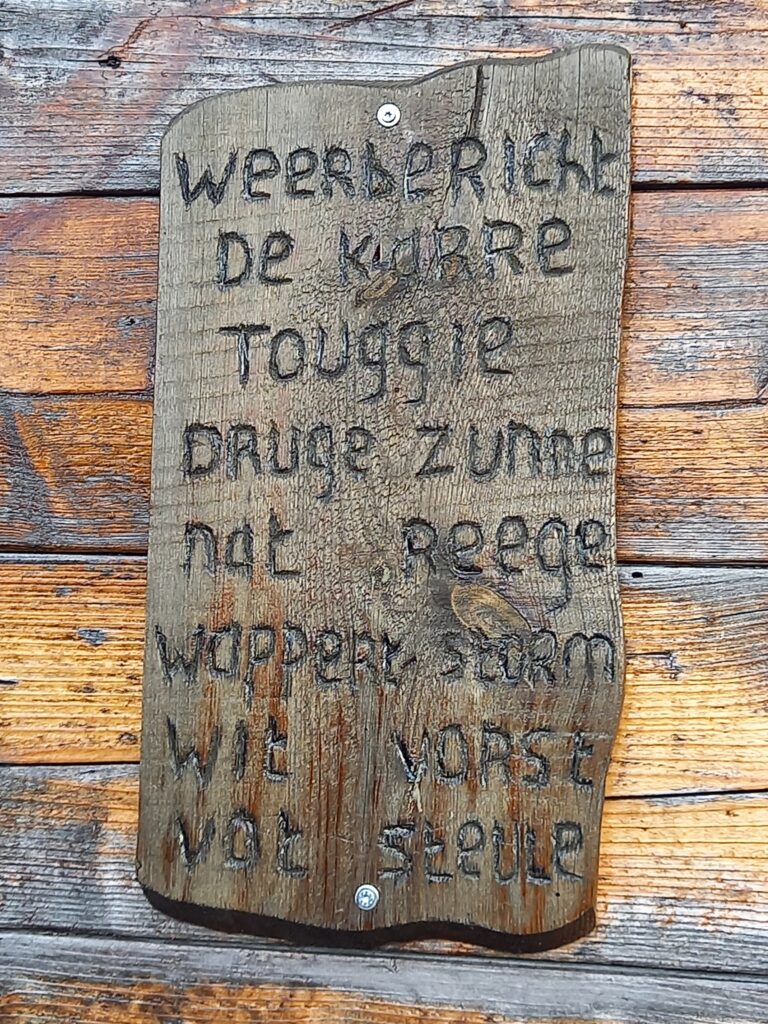 WeeRbeRicht
De KaRRe
Touggie
DRUge zunne
nat Reege
wappeRt stoRm
wit voRst
vot steule